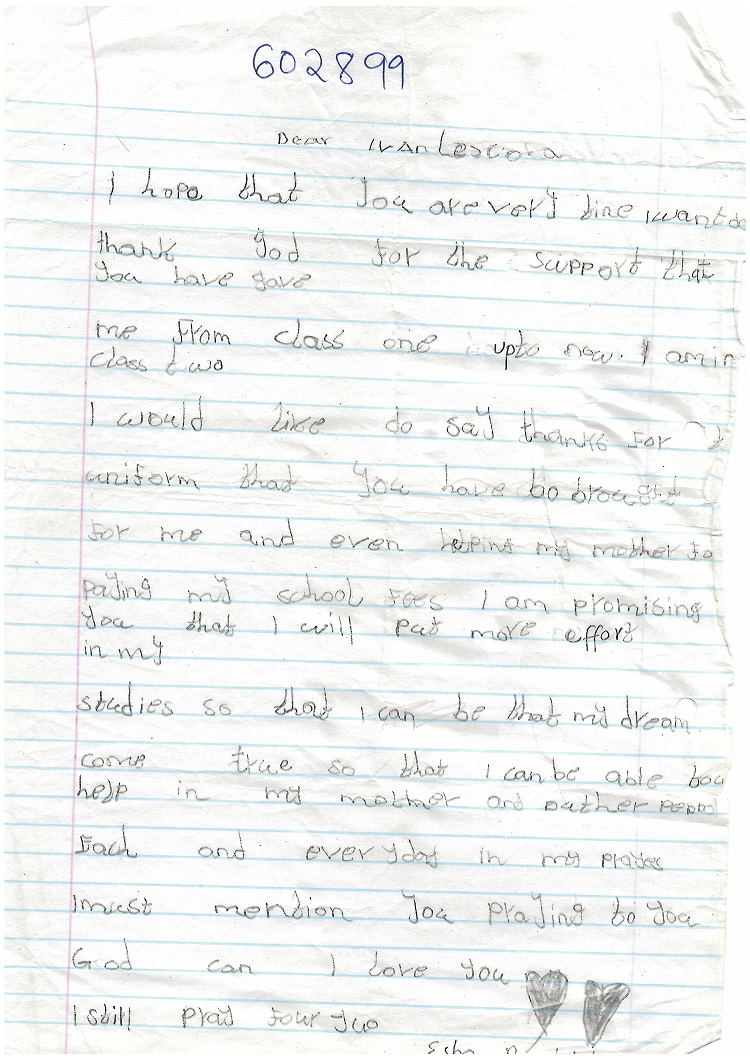 602899
Dear IVAN Lescora
I hope that you are very fine i want do
thank god for the support that
you have gave
me from class one upto now. I am in
class two
I would like do say thanks for
uniform that you have bo brought
for me and even helping my mother fo
paying my school fees I am promising
you that I will put more effort
in my
studies so that I can be that my dream
come true so that I can be able bou
help in my mother and outher
Each and every yday in my prayes
I must mention you praying to you
God can I love you
I still pray four yuo